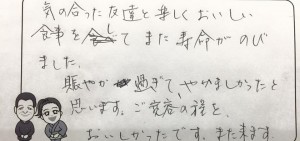 気の合った友達と楽しくおいしい
食事をして また寿命がのび
ました。
賑やか 過ぎて、やかましかったと
思います。ご容赦の程を、
おいしかったです。また来ます。